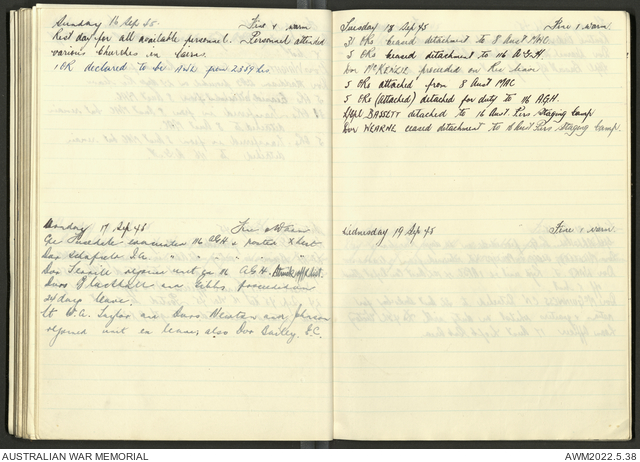 Sunday 16 Sep 45. Fine & warm
Rest day for all available personnel. Personnel attended
various churches in
1 OR declared to be AWL from 2359 hrs
Monday 17 Sep 45 Fine
evacuated 116 AGH &
Dvr
Dvr rejoins unit 116 A.G.H.
Dvrs and Gibbs proceeded on
leave.
Lt W.A. Taylor and Dvrs Newton and Johnson
rejoined unit ex leave; also Dvr Bailey, E.C.
Tuesday 18 Sep 45 Fine & warm.
ORs ceased detachment to 8 Aust MAC
5 ORs ceased detachment to 116 A.G.H.
Dvr McKENZIE proceeded on Rec leave
5 ORs attached from 8 Aust MAC
5 ORs (attached) detached for duty to 116 AGH.
L/Cpl BASSETT detached to 16 Aust Pers Staging Camp
Dvr WEARNE ceased detachment to 16 Aust Pers Staging Camp.
Wednesday 19 Sep 45 Fine & warm.
AUSTRALIAN WAR MEMORIAL
AWM2022.5.38